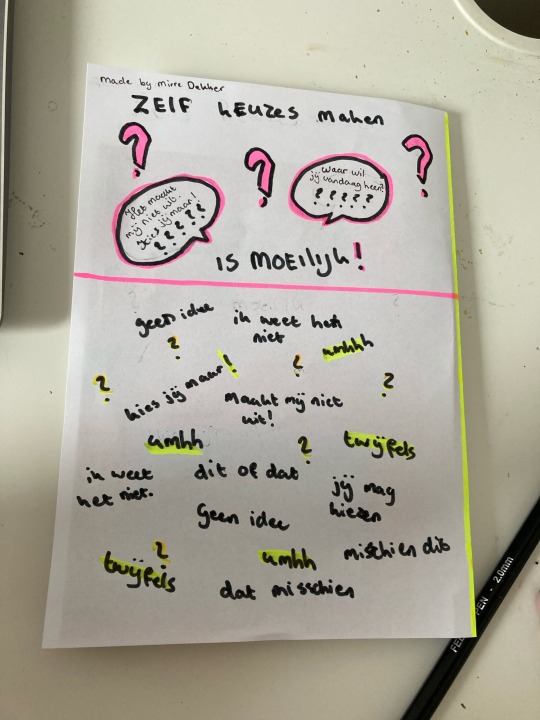 made by mirre Dekker
ZELF KEUZES maken
?
?
?
Het maakt
mij niet uit.
Kies jij maar!
? ? ? ? ?
waar wil
jij vandaag heen?
? ? ? ? ?
IS MOEILIJK!
geen idee
ik weet het
niet
umhhh
?
?
?
?
kies jij maar!
maakt mij niet
uit!
umhh
?
twijfels
ik weet
het niet.
dit of dat
jij mag
kiezen
Geen idee
?
twijfels
umhh
misschien dit
dat misschien
PEN - 2.0mm